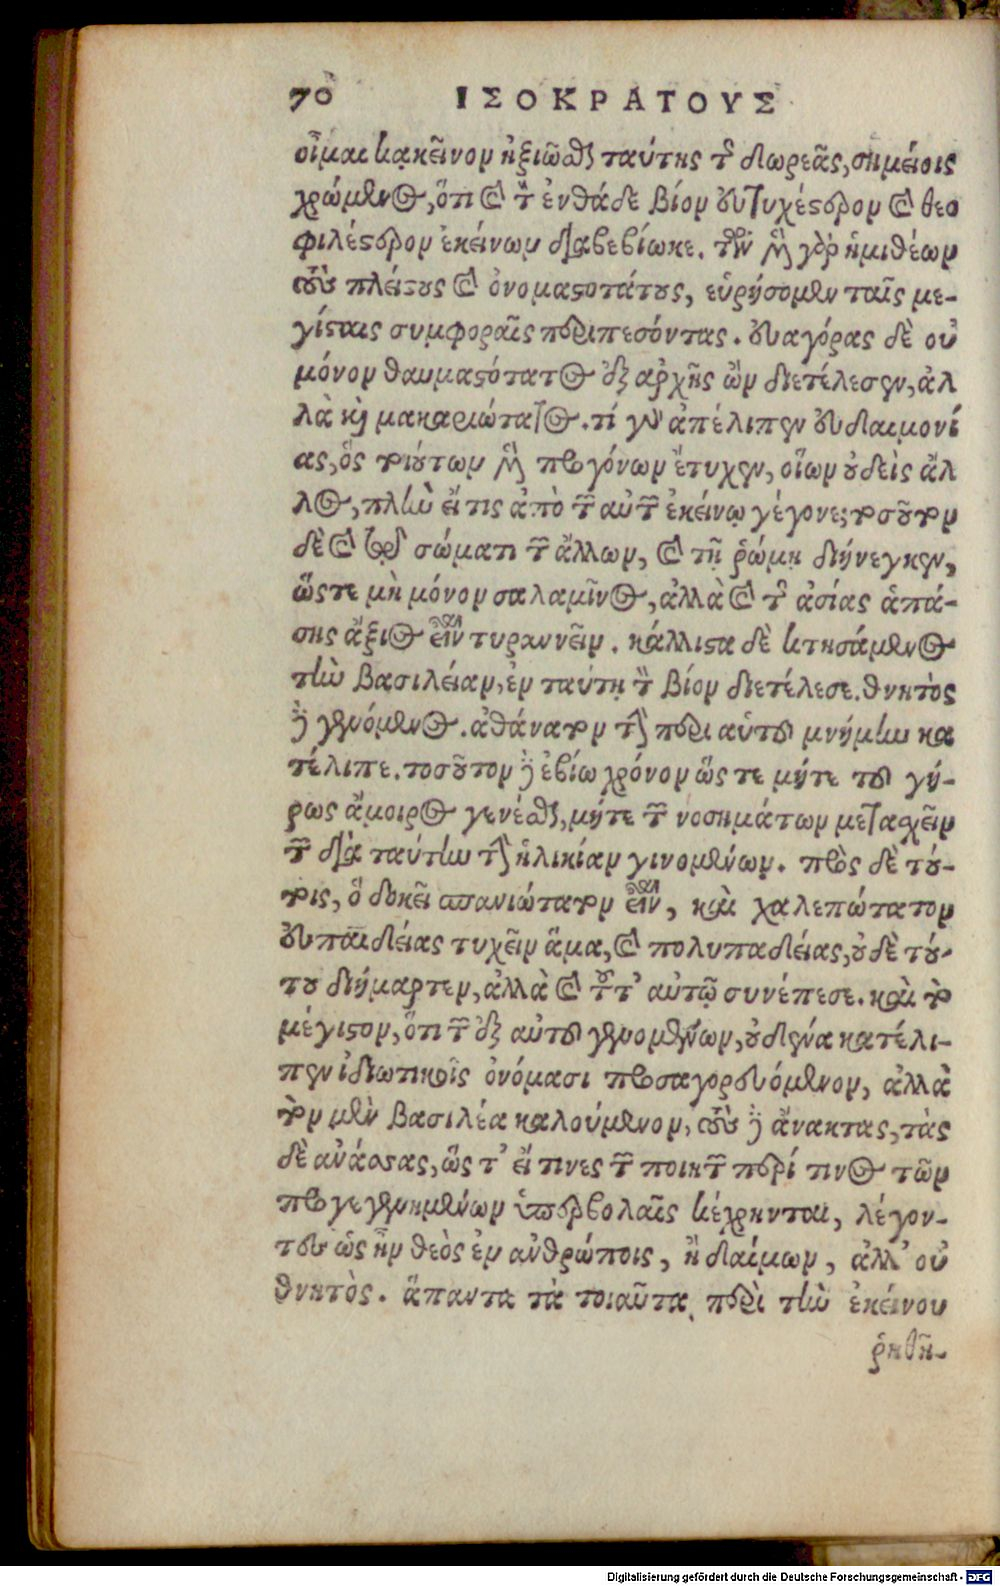 70 ΙΣΟΚΡΑΤΟΥΣ
οἶμαι κἀκεῖνον ἠξιῶσθαι ταύτης τῆς δωρεᾶς, σημείοις
χρώμενος, ὅτι καὶ τὸν ἐνθάδε βίον εὐτυχέστερον καὶ θεο
φιλέστερον ἐκείνων διαβεβίωκε. τῶν μὲν γὰρ ἡμιθέων
τοὺς πλείστους καὶ ὀνομαστοτάτους, εὑρήσομεν ταῖς με-
γίσταις συμφοραῖς περιπεσόντας. εὐαγόρας δὲ οὐ
μόνον θαυμαστότατος ἐξ ἀρχῆς ὢν διετέλεσεν, ἀλ
λὰ καὶ μακαριώτατος. τί γὰρ ἀπέλιπεν εὐδαιμονί
ας, ὃς τοιούτων μὲν προγόνων ἔτυχεν, οἵων οὐδεὶς ἄλ
λος, πλὴν εἴ τις ἀπὸ τῶν αὐτῶν ἐκείνῳ γέγονε; τοσοῦτον
δὲ καὶ τῷ σώματι τῶν ἄλλων, καὶ τῇ ῥώμῃ διήνεγκεν,
ὥστε μὴ μόνον σαλαμῖνος, ἀλλὰ καὶ τῆς ἀσίας ἁπά-
σης ἄξιος εἶναι τυραννεῖν. κάλλιστα δὲ κτησάμενος
τὴν βασιλείαν, ἐν ταύτῃ τὸν βίον διετέλεσε. θνητὸς
δὲ γενόμενος. ἀθάνατον τὴν περὶ αὑτοῦ μνήμην κα
τέλιπε. τοσοῦτον δὲ ἐβίω χρόνον ὥστε μήτε τοῦ γή-
ρως ἄμοιρος γενέσθαι, μήτε τῶν νοσημάτων μετασχεῖν
τῶν διὰ ταύτην τὴν ἡλικίαν γινομένων. πρὸς δὲ τού-
τοις, ὃ δοκεῖ σπανιώτατον εἶναι, καὶ χαλεπώτατον
εὐπαιδείας τυχεῖν ἅμα, καὶ πολυπαιδείας, οὐδὲ τού-
του διήμαρτεν, ἀλλὰ καὶ τοῦτ' αὐτῷ συνέπεσε. καὶ τὸ
μέγιστον, ὅτι τῶν ἐξ αὐτοῦ γενομένων, οὐδένα κατέλι-
πεν ἰδιωτικοῖς ὀνόμασι προσαγορευόμενον, ἀλλὰ
τὸν μὲν βασιλέα καλούμενον, τοὺς δὲ ἄνακτας, τὰς
δὲ ἀνάσσας, ὥς τ' εἴ τινες τῶν ποιητῶν περί τινος τῶν
προγεγενημένων ὑπερβολαῖς κέχρηνται, λέγον-
τες ὡς ἦν θεὸς ἐν ἀνθρώποις, ἢ δαίμων, ἀλλ' οὐ
θνητὸς. ἅπαντα τὰ τοιαῦτα περὶ τὴν ἐκείνου
ῥηθῆ-
Digitalisierung gefördert durch die Deutsche Forschungsgemeinschaft - DFG